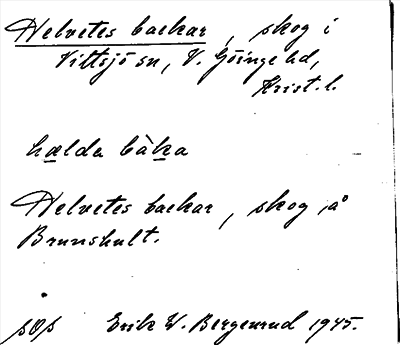 Helvetes backar, skog i
Vittsjö sn, V. Göinge hd,
Krist. l.
hælda bàka
Helvetes backar, skog på
Brunshult.
SOS Erik W. Bergenrud 1945.